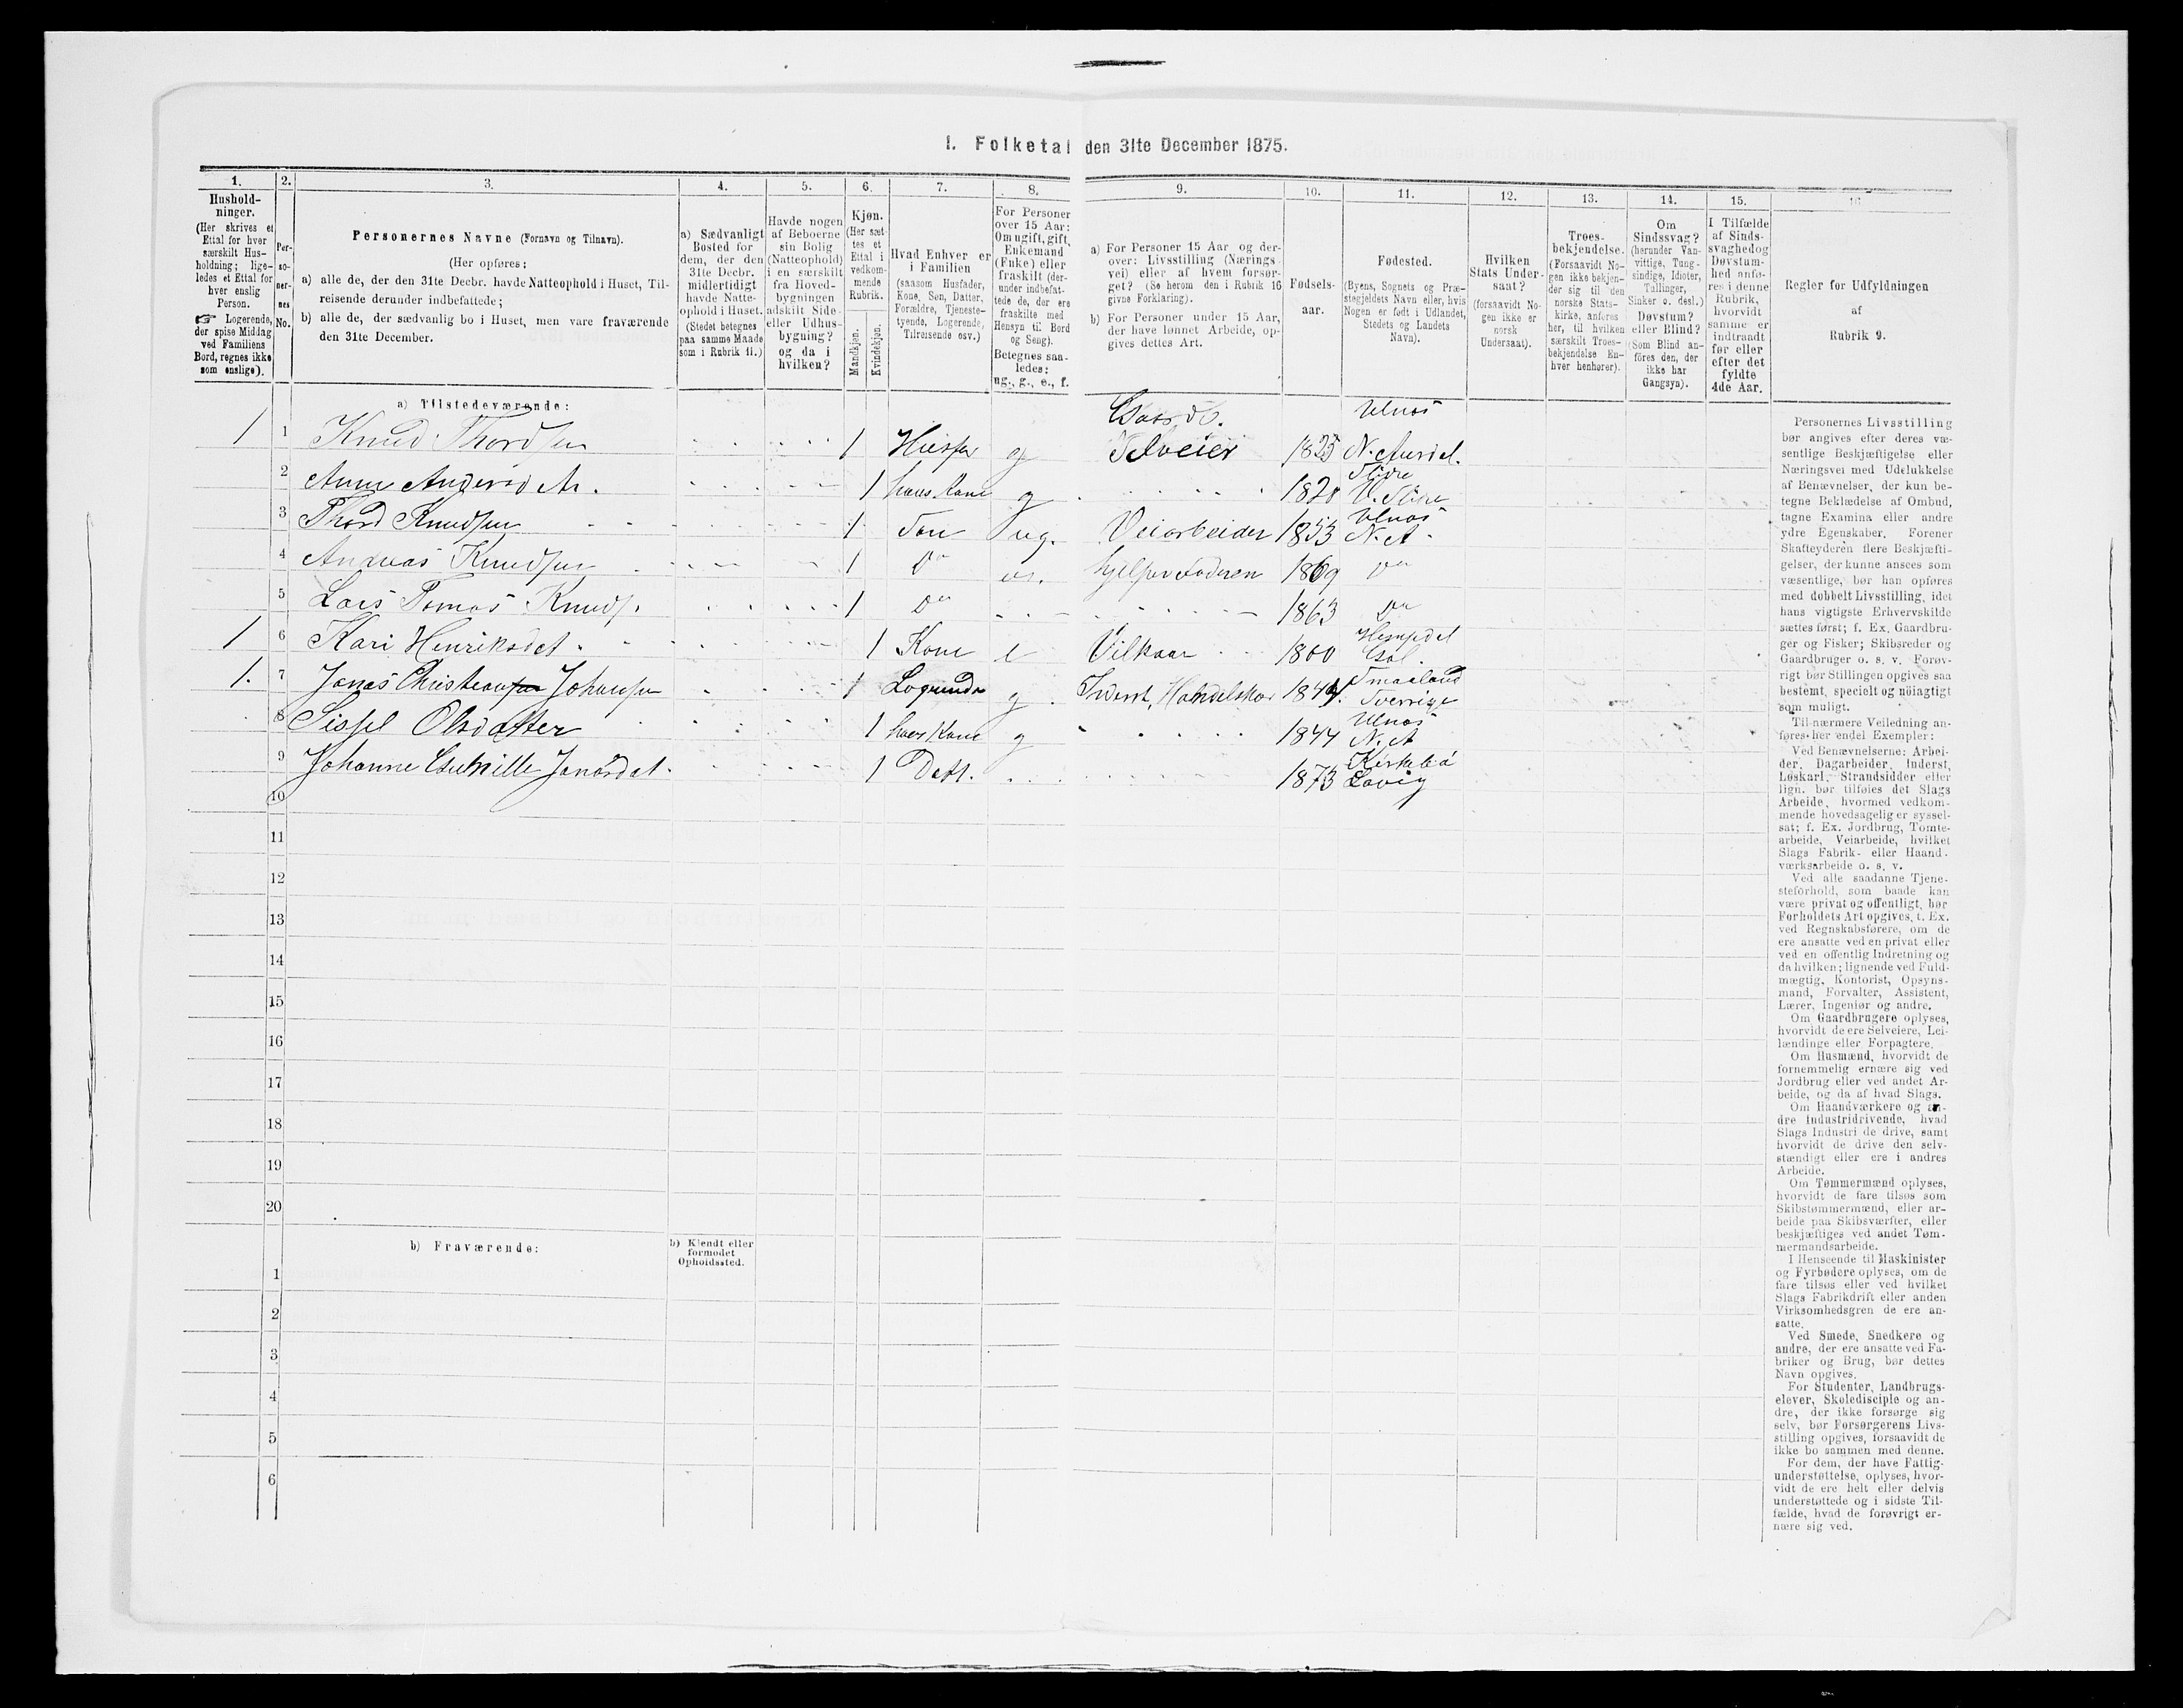 1. Folketal den 31te December 1875.
1. 2. 3. 4. 5. 6. 7. 8. 9. 10. 11. 12. 13. 14. 15. 16
Hushold-
ninger.
(Her skrives et
Ettal for hver
særskilt Hus-
holdning; lige-
ledes et Ettal for
hver enslig
Person.
☞ Logerende,
der spise Middag
ved Familiens
Bord, regnes ikke
som enslige).
Per-
so-
ner-
nes
No.
Personernes Navne (Fornavn og Tilnavn).
(Her opføres:
a) alle de, der den 31te Decbr. havde Natteophold i Huset, Til-
reisende derunder indbefattede;
b) alle de, der sædvanlig bo i Huset, men vare fraværende
den 31te December.
a) Sædvanligt
Bosted for
dem, der den
31te Decbr.
midlertidigt
havde Natte-
ophold i Huset.
(Stedet betegnes
paa samme Maade
som i Rubrik 11.)
Havde nogen
af Beboerne
sin Bolig
(Natteophold)
i en særskilt
fra Hoved-
bygningen
adskilt Side-
eller Udhus-
bygning?
og da i
hvilken?
Kjøn.
(Her sæt-
tes et
Ettal i
vedkom-
mende
Rubrik.
Mandkjøn.
Kvindekjøn.
Hvad Enhver er
i Familien
(saasom Husfader,
Kone, Søn, Datter,
Forældre, Tjeneste-
tyende, Logerende,
Tilreisende osv.)
For Personer
over 15 Aar:
Om ugift, gift,
Enkemand
(Enke) eller
fraskilt (der-
under indbefat-
tede de, der ere
fraskilte med
Hensyn til Bord
og Seng).
Betegnes saa-
ledes:
ug., g., e., f.
a) For Personer 15 Aar og der-
over: Livsstilling (Nærings-
vei) eller af hvem forsør-
get? (Se herom den i Rubrik 16
givne Forklaring).
b) For Personer under 15 Aar,
der have lønnet Arbeide, op-
gives dettes Art.
Fødsels-
aar.
Fødested.
(Byens, Sognets og Præ-
stegjeldets Navn eller, hvis
Nogen er født i Udlandet,
Stedets og Landets
Navn).
Hvilken
Stats Under-
saat?
(forsaavidt No-
gen ikke er
norsk
Undersaat).
Troes-
bekjendelse.
(Forsaavidt No-
gen ikke bekjen-
der sig til den
norske Stats-
kirke, anføres
her, til hvilken
særskilt Troes-
bekjendelse En-
hver henhører).
Om
Sindssvag?
(herunder Van-
vittige, Tung-
sindige, Idioter,
Tullinger,
Sinker o. desl.)
Døvstum?
eller Blind?
(Som Blind an-
føres den, der
ikke har
Gangsyn).
I Tilfælde
af Sinds-
svaghed og
Døvstum-
hed anfø-
res i denne
Rubrik,
hvorvidt
samme er
indtraadt
før eller
efter det
fyldte
4de Aar.
Regler for Udfyldningen
af
Rubrik 9.
a) Tilstedeværende:
Ulnæs
1 1 Knud Thordsen 1 Husfar g Selveier 1825 N. Aurdal.
Slidre
2 Anne Andersdtr. 1 hans Kone g 1820 V. Slidre
Ulnæs
3 Thord Knudsen 1 Søn ug. Veiarbeider 1853 N. A.
4 Andreas Knudsen 1 Do hjelper Faderen 1869 Do
5 Lars Tomas Knuds. 1 Do 1863 Do
Hemsedal
1 6 Kari Henriksdat. 1 Kone e Vilkaar 1800 Gol.
Smaaland
1. 7 Jonas Christiansen Johansen 1 Logerende g Inderst, Handelskar 1844. Sverrige
Ulnæs
8 Sissel Olsdatter 1 hans Kone g 1844 N. A
Kirkebø
9 Johanne Jonasdat. 1 Datt. 1873 Lavig
10
11
12
13
14
15
16
17
18
19
20
b) Fraværende:
b) Kjendt eller
formodet
Opholdssted.
1
2
3
4
5
6
Personernes Livsstilling
bør angives efter deres væ-
sentlige Beskjæftigelse eller
Næringsvei med Udelukkelse
af Benævnelser, der kun be-
tegne Beklædelse af Ombud,
tagne Examina eller andre
ydre Egenskaber. Forener
Skatteyderen flere Beskjæfti-
gelser, der kunne ansees som
væsentlige, bør han opføres
med dobbelt Livsstilling, idet
hans vigtigste Erhvervskilde
sættes først; f. Ex. Gaardbru-
ger og Fisker; Skibsreder og
Gaardbruger o. s. v. Forøv-
rigt bør Stillingen opgives saa
bestemt, specielt og nøiagtigt
som muligt.
Til nærmere Veiledning an-
føres her endel Exempler:
Ved Benævnelserne: Arbei-
der, Dagarbeider, Inderst,
Løskarl, Strandsidder eller
lign. bør tilføies det Slags
Arbeide, hvormed vedkom-
mende hovedsagelig er syssel-
sat; f. Ex. Jordbrug, Tomte-
arbeide, Veiarbeide, hvilket
Slags Fabrik- eller Haand-
værksarbeide o. s. v.
Ved alle saadanne Tjene-
steforhold, som baade kan
være privat og offentligt, bør
Forholdets Art opgives, t. Ex.
ved Regnskabsførere, om de
ere ansatte ved en privat eller
ved en offentlig Indretning og
da hvilken; lignende ved Fuld-
mægtig, Kontorist, Opsyns-
mand, Forvalter, Assistent,
Lærer, Ingeniør og andre.
Om Gaardbrugere oplyses,
hvorvidt de ere Selveiere, Lei-
lændinge eller Forpagtere.
Om Husmænd, hvorvidt de
fornemmelig ernære sig ved
Jordbrug eller ved andet Ar-
beide, og da af hvad Slags.
Om Haandværkere og an-
dre Industridrivende, hvad
Slags Industri de drive, samt
hvorvidt de drive den selv-
stændigt eller ere i andres
Arbeide.
Om Tømmermænd oplyses,
hvorvidt de fare tilsøs som
Skibstømmermænd, eller ar-
beide paa Skibsværfter, eller
beskjæftiges ved andet Tøm-
mermandsarbeide.
I Henseende til Maskinister
og Fyrbødere oplyses, om de
fare tilsøs eller ved hvilket
Slags Fabrikdrift eller anden
Virksomhedsgren de ere an-
satte.
Ved Smede, Snedkere og
andre, der ere ansatte ved Fa-
briker og Brug, bør dettes
Navn opgives.
For Studenter, Landbrugs-
elever, Skoledisciple og an-
dre, der ikke forsørge sig
selv, bør Forsørgerens Livs-
stilling opgives, forsaavidt de
ikke bo sammen med denne.
For dem, der have Fattig-
understøttelse, oplyses, hvor-
vidt de ere helt eller delvis
understøttede og i sidste Til-
fælde, hvad de forøvrigt er-
nære sig ved.